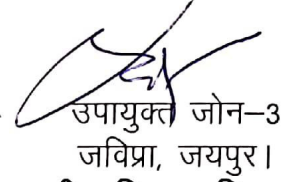 उपायुक्त जोन–3
जविप्रा, जयपुर।